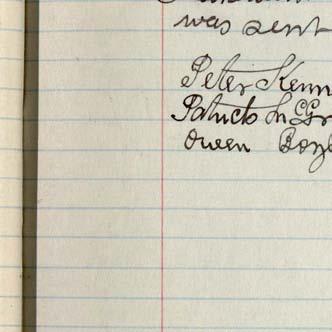 was sent
Peter Kenn
Patrick McGr
Owen Boyl